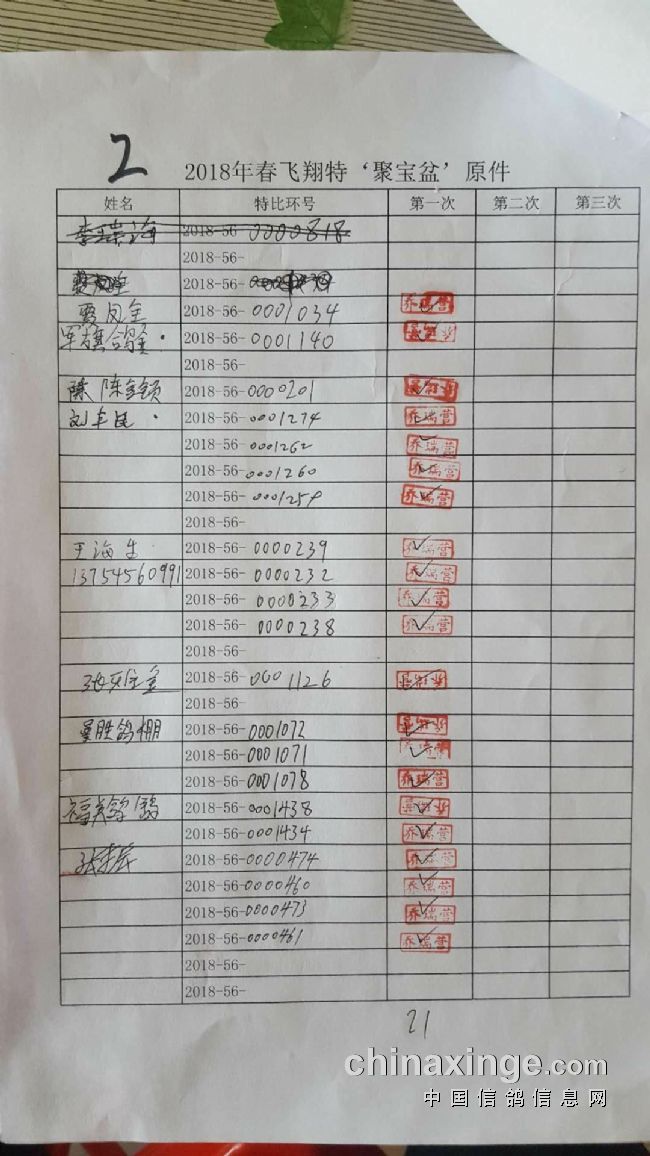 2
2018年春飞翔特‘聚宝盆’原件
姓名 特比环号 第一次 第二次 第三次
2018-56- 0000818
2018-56-
2018-56-
2018-56- 0001034 乔瑞营
2018-56- 0001140
2018-56-
陈 2018-56- 0000201
刘 2018-56- 0001274 乔瑞营
2018-56- 0001262 乔瑞营
2018-56- 0001260 乔瑞营
2018-56- 乔瑞营
2018-56-
王海生 2018-56- 0000239 乔瑞营
13754560991 2018-56- 0000232 乔瑞营
2018-56- 0000233 乔瑞营
2018-56- 0000238 乔瑞营
2018-56-
2018-56- 0001126
2018-56-
胜鸽棚 2018-56- 0001072
2018-56- 0001071
2018-56- 0001078 乔瑞营
2018-56- 0001438
2018-56- 0001434 乔瑞营
2018-56- 0000474 乔瑞营
2018-56- 0000460 乔瑞营
2018-56- 0000473 乔瑞营
2018-56- 0000461 乔瑞营
2018-56-
2018-56-
21
chinaxinge.com
中国信鸽信息网